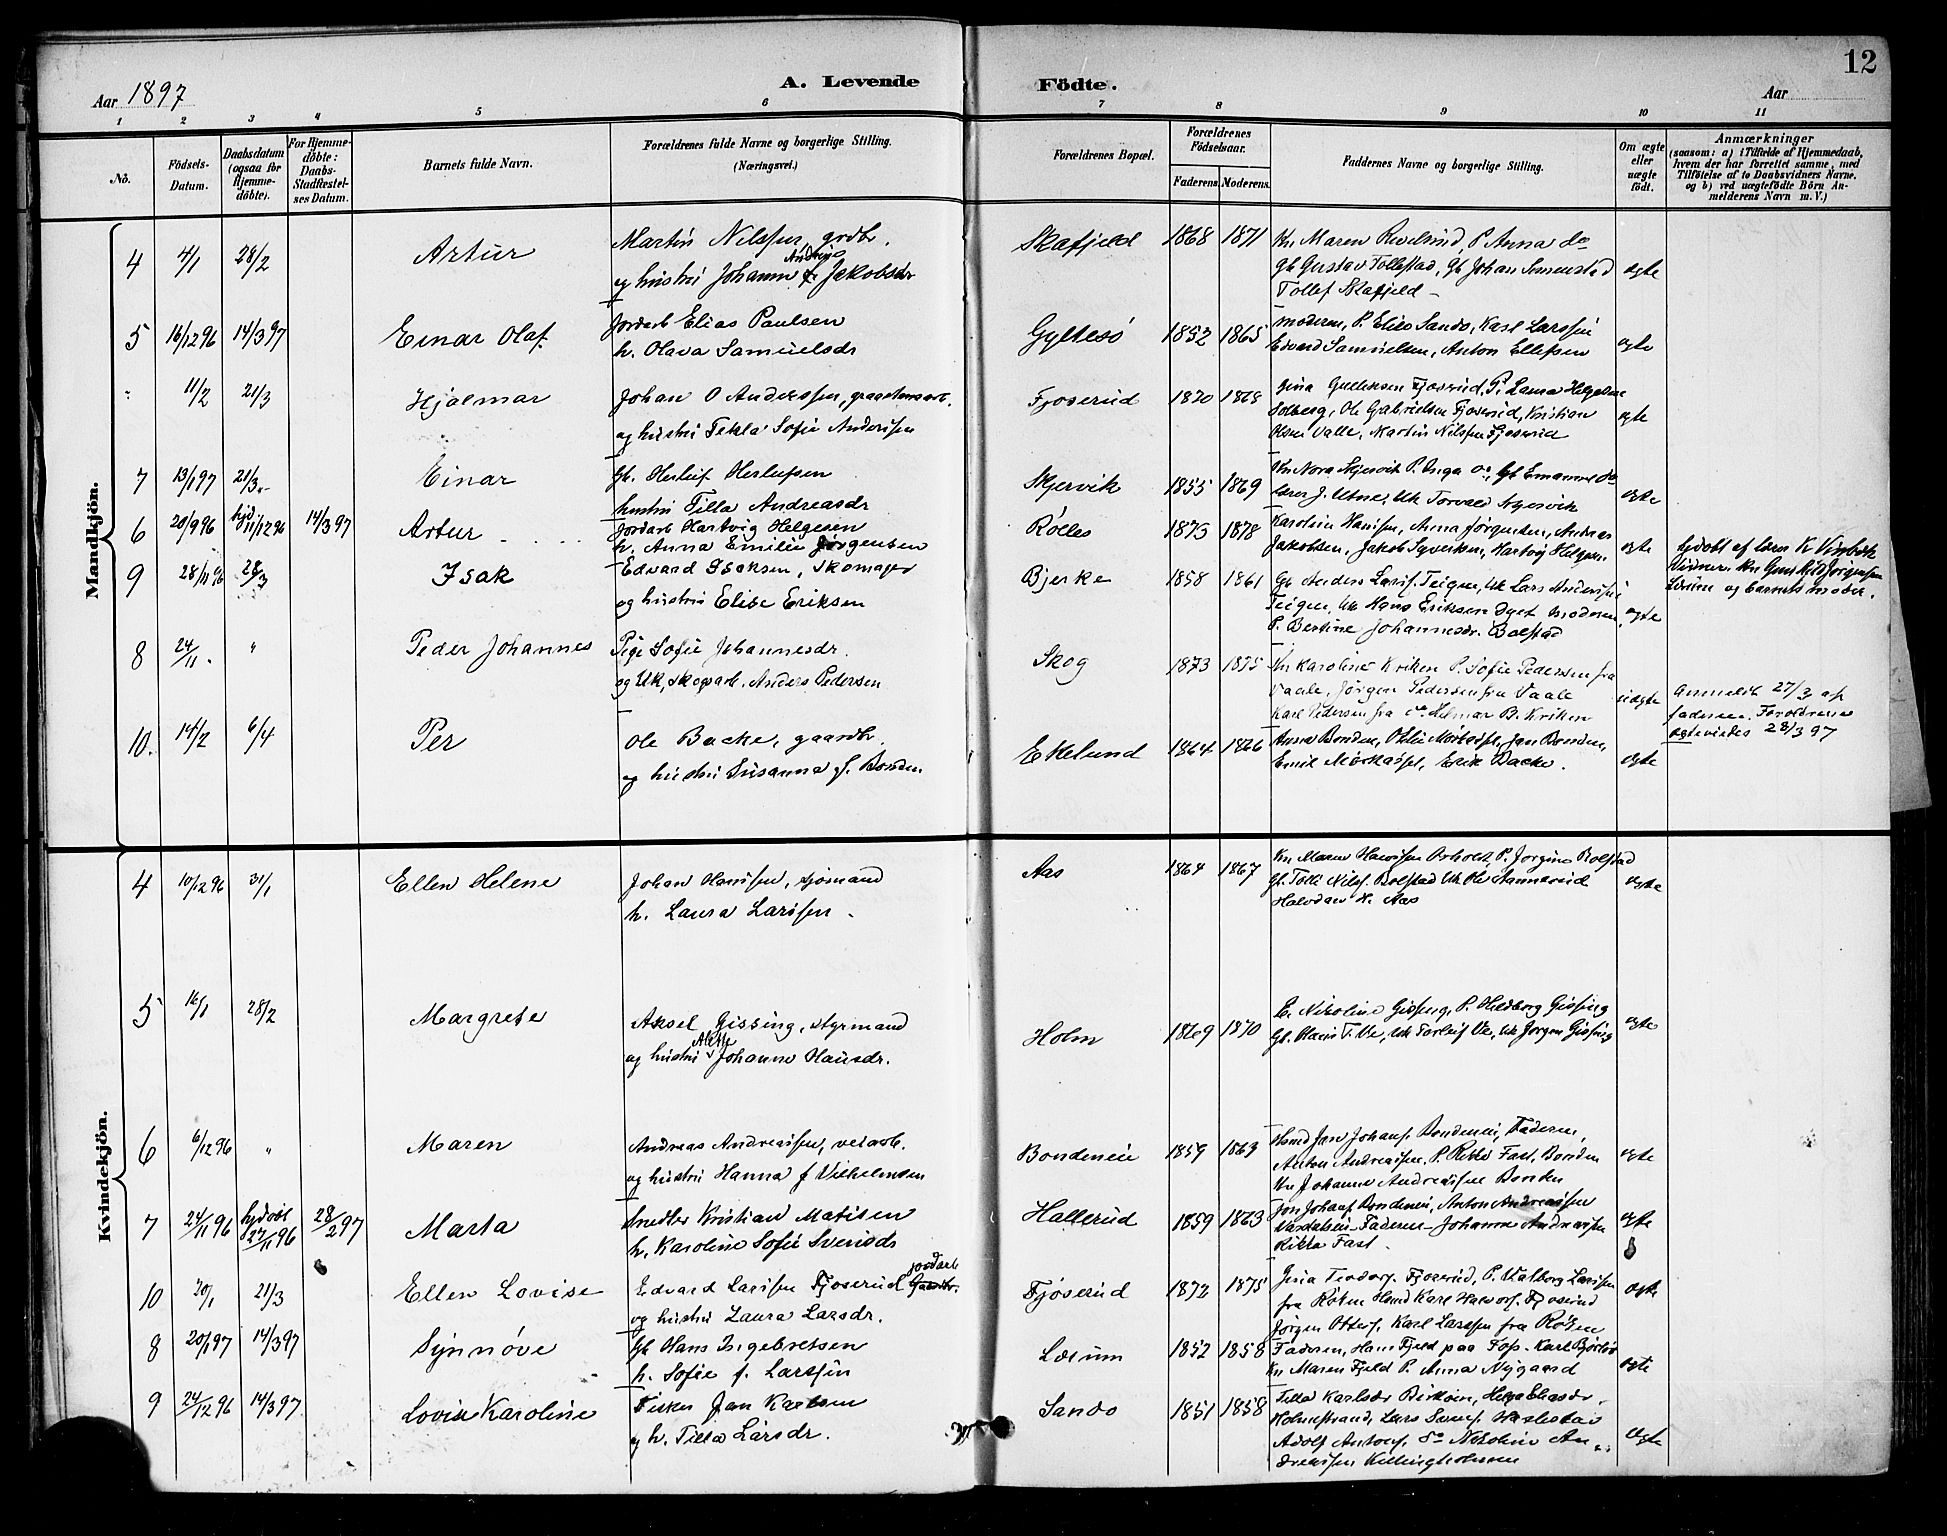 Aar 1897
A. Levende
Födte.
Aar
12
1 2 3 4 5 6 7 8 9 10 11
No.
Födsels-
Datum.
Daabsdatum
(ogsaa for
Hjemme-
döbte).
For Hjemme-
döbte:
Daabs-
Stadfæstel-
ses Datum.
Barnets fulde Navn.
Forældrenes fulde Navne og borgerlige Stilling.
(Næringsvei.)
Forældrenes Bopæl.
Forældrenes
Födselsaar.
Faderens. Moderens.
Faddernes Navne og borgerlige Stilling.
Om ægte
eller
uægte
födt.
Anmærkninger
(saasom: a) i Tilfælde af Hjemmedaab,
hvem der har forrettet samme, med
Tilföielse af to Daabsvidners Navne,
og b) ved uægtefödte Börn An-
melderens Navn m. V.)
Mandkjön.
4 4/1 28/2 Artur
Martin Nilssen, grdbr.
og hustri Johanne Andrine Jakobsdr
Skafjeld 1868 1871
Kn Maren Revelsrud, P. Anna do
Gb Gustav Tollestad, Gb Johan
Tollef Skafjeld
ægte
5 16/12 96 14/3 97 Einar Olaf
Jordarb Elias Paulsen
h. Olava Samuelsdr
Gyltesö 1852 1865
moderen, P. Elise Sando, Karl Larssen
Edvard Samuelsen, Anton Ellefsen
ægte
" 11/2 21/3 Hjalmar
Johan O Anderssen,
og hustri Tekla Sofie Anderssen
Fjoserud 1870 1868
Gina Gulliksen Fjoserud, P. Laura Helgesen
Solberg, Ole Gabrielsen Fjoserud, Kristian
Olsen Valle, Martin Nilssen Fjoserud
ægte
7 13/1 97 21/3 Einar
Gb. Herluf Herlufsen
hustri Tilla Andreasdr
Skjervik 1855 1869
Kn Nora Skjervik P. Inga do, Gb Emanuel do
lærer J. Utne, Uk Torvald Skjervik
ægte
6 20/9 96 hjd 11/12 96 14/3 97 Artur
Jordarb Hartvig Helgesen
h. Anna Emilie Jørgensen
Rölles 1873 1878
Karoline Hanssen, Anna Jørgensen, Andreas
Jakobsen, Jakob Syvertsen, Hartvig Helgesen
ægte
hjdöbt af lærer K
Vidner: Kn Gunhild Jörgensen
og barnets moder.
9 28/11 96 28/3 Isak
Edvard Isaksen, skomager
og hustri Elise Eriksen
Bjerke 1858 1861
Gb Anders Larss. Teigen, Uk Lars Anderssen
Teigen, Uk Hans Eriksen moderen
P. Bertine Johannesdr. Bolstad
ægte
8 24/11 " Peder Johannes
Pige Sofie Johannesdr.
og Uk, skogarb. Anders Pedersen
Skog 1873 1875
Kn Karoline Kriken P. Sofie Pedersen fra
Vaale, Jørgen Pedersen fra Vaale
Karl Pedersen fra do Helmar B. Kriken
uægte
Anmeldt 27/3 af
faderen. Forældrene
ægtevides 28/3 97
10. 14/2 6/4 Per
Ole Backe, gaardbr.
og hustri Susanna f. Bonden
Ekelund 1864 1866
Anna Bonden, Otilie, Jan Bonden,
Emil, Erik Backe.
ægte
Kvindekjön.
4 10/12 96 31/1 Ellen Helene
Johan Hanssen, sjömand
h. Laura Larssen
Aas 1864 1867
Kn Maren Hanssen, P. Jorgine Bolstad
Gb. Tolle Nilss. Bolstad Uk Ole
Halvdan H. Aas
ægte
5 16/1 28/2 Margrete
Aksel Gissing, styrmand
og hustri Alette Johanne Hansdr.
Holm 1869 1870
E. Nikoline Gissing, P. Hildborg Gissing
Gb. Hans T. Ve, Uk Torleif Ve, Uk Jørgen Gissing
ægte
6 6/12 96 " Maren
Andreas Andreassen, veiarb.
og hustri Hanna f Vilhelmsen
Bondeneie 1859 1863
Jan Johans. Bondeneie, Faderen,
Anton Andreassen, P. Rikka Fast, Bonden
Kn Johanne Andreassen Bonden
ægte
7 24/11 96 hjdöbt 27/11 96 28/2 97 Marta
Snedker Kristian Matisen
h. Karoline Sofie Svensdr
Hallerud 1859 1863
Jon Johans Bondeneie, Anton Andreassen
Faderen Johanne Andreassen
Rikka Fast
ægte
10 20/1 21/3 Ellen Lovise
Edvard Larssen Fjoserud jordarb Gaardbr.
og hustri Laura Larsdr.
Fjöserud 1872 1875
Gina Teodors. Fjoserud, P. Valborg Larssen
fra Röken Karl Halvors. Fjoserud
Jörgen Otters. Karl Larssen fra Röken
ægte
8 20/1 97 14/3 97 Synnöve
Gb Hans Ingebretsen
h. Sofie f. Larssen
Læsum 1852 1858
Faderen, Hans Fjeld paa Fos. Karl
Kn Maren Fjeld P. Anna Nygaard
ægte
9 24/12 96 14/3 97 Lovise Karoline
Fisker Jan Karlsen
og h. Tilla Larsdr.
Sando 1851 1858
Tilla Karlsdr, Helga Eliasdr.
Holmestrand, Lars
Adolf Antons. do Nikoline An
dreassen Killingholmen
ægte